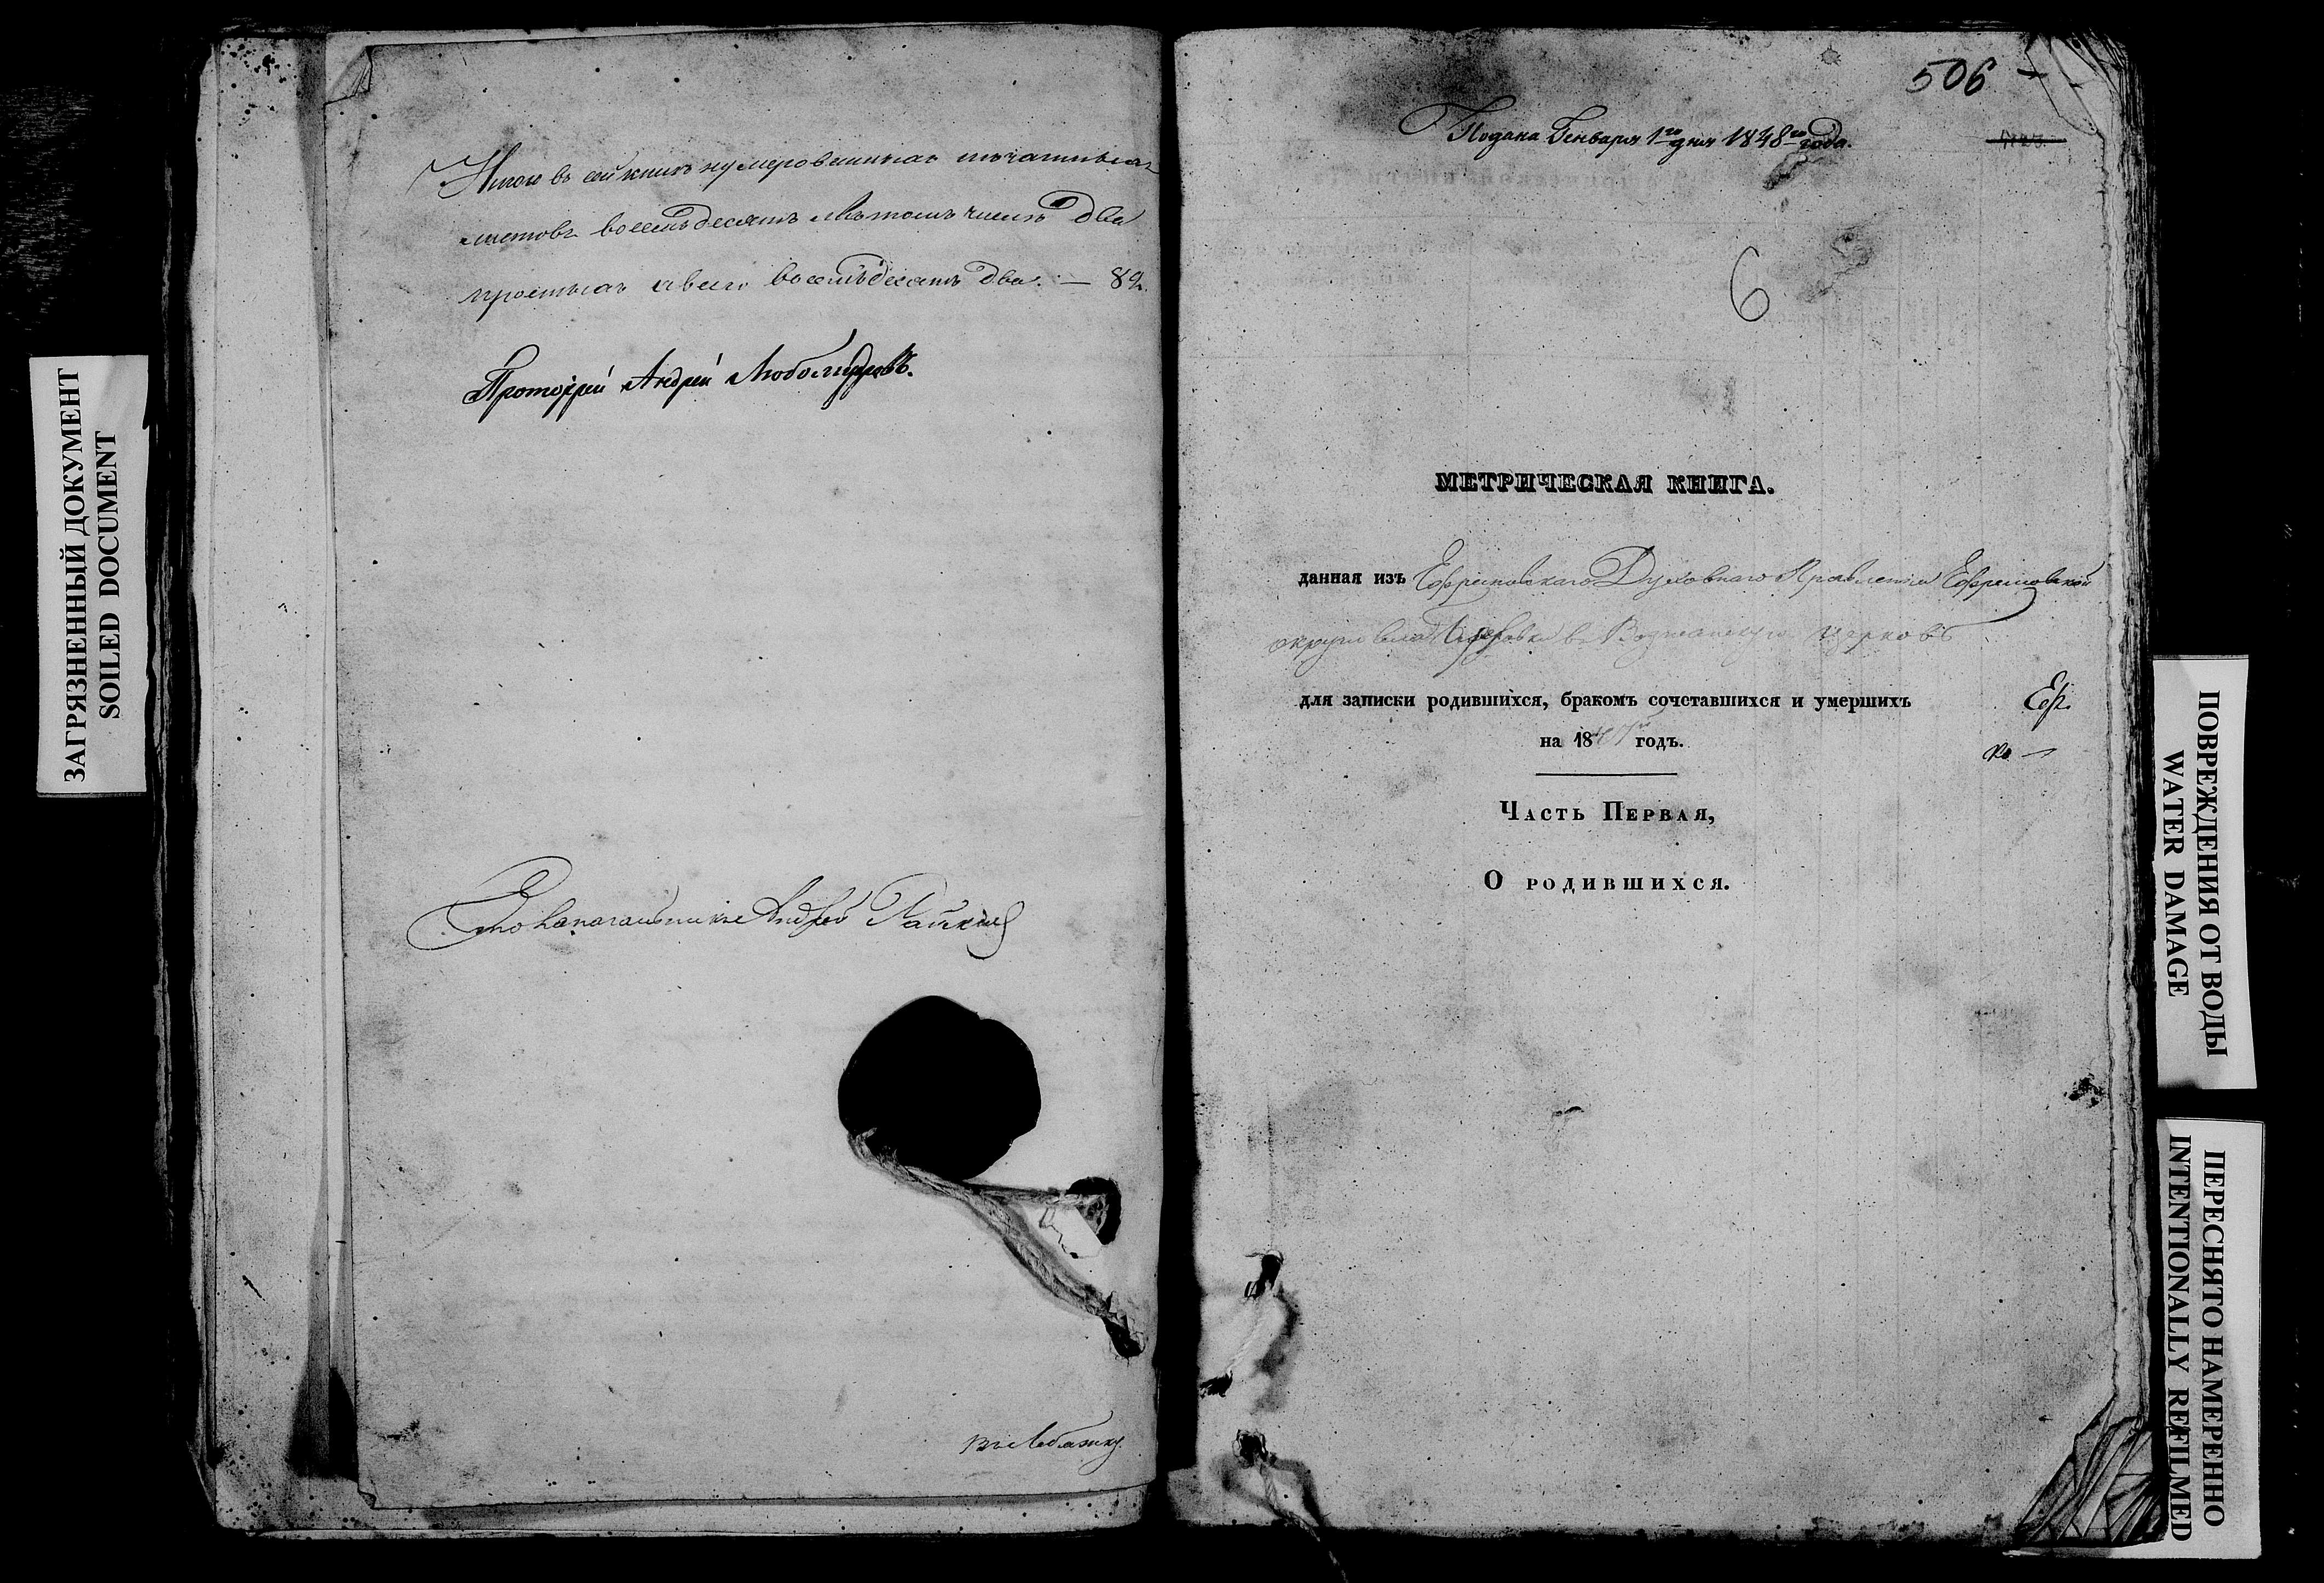 ЗАГРЯЗНЕННЫЙ ДОКУМЕНТ
SOILED DOCUMENT
Итого въ сей книгѣ нумерованныхъ печатныхъ
листовъ восемьдесятъ въ томъ числѣ два
простыхъ а всего восемьдесятъ два. — 82.
Протоіерей Андрей Любомудровъ.
Столоначальникъ Андрей
506
Подана Генваря 1го дня 1848го года.
6
МЕТРИЧЕСКАЯ КНИГА.
данная изъ Ефремовскаго Духовнаго Правленія Ефремовской
округи села въ церковь
для записки родившихся, бракомъ сочетавшихся и умершихъ
Еф.
на 184 годъ.
Часть Первая,
О родившихся.
ПОВРЕЖДЕНИЯ ОТ ВОДЫ
WATER DAMAGE
ПЕРЕСНЯТО НАМЕРЕННО
INTENTIONALLY REFILMED